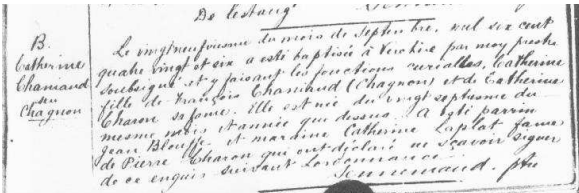 De lestang
B.
Catherine
Chamaud
seu
Chagnon
Le vingtneufviesme du mois de Septembre, mil six cent
quatre vingt et six a esté baptisée à Verchère par moy prestre
soubsigné et y faisant les fonctions curialles, Catherine
fille de François Chamaud (Chagnon) et de Catherine
Charon sa femme. Elle est née du vingt septiesme du
mesme mois et année que dessus. A esté parrin
Jean Blouffe et marraine Catherine Laplat famme
de Pierre Charon qui ont déclaré ne scavoir signer
de ce enquis suivant lordonnance.
ptre